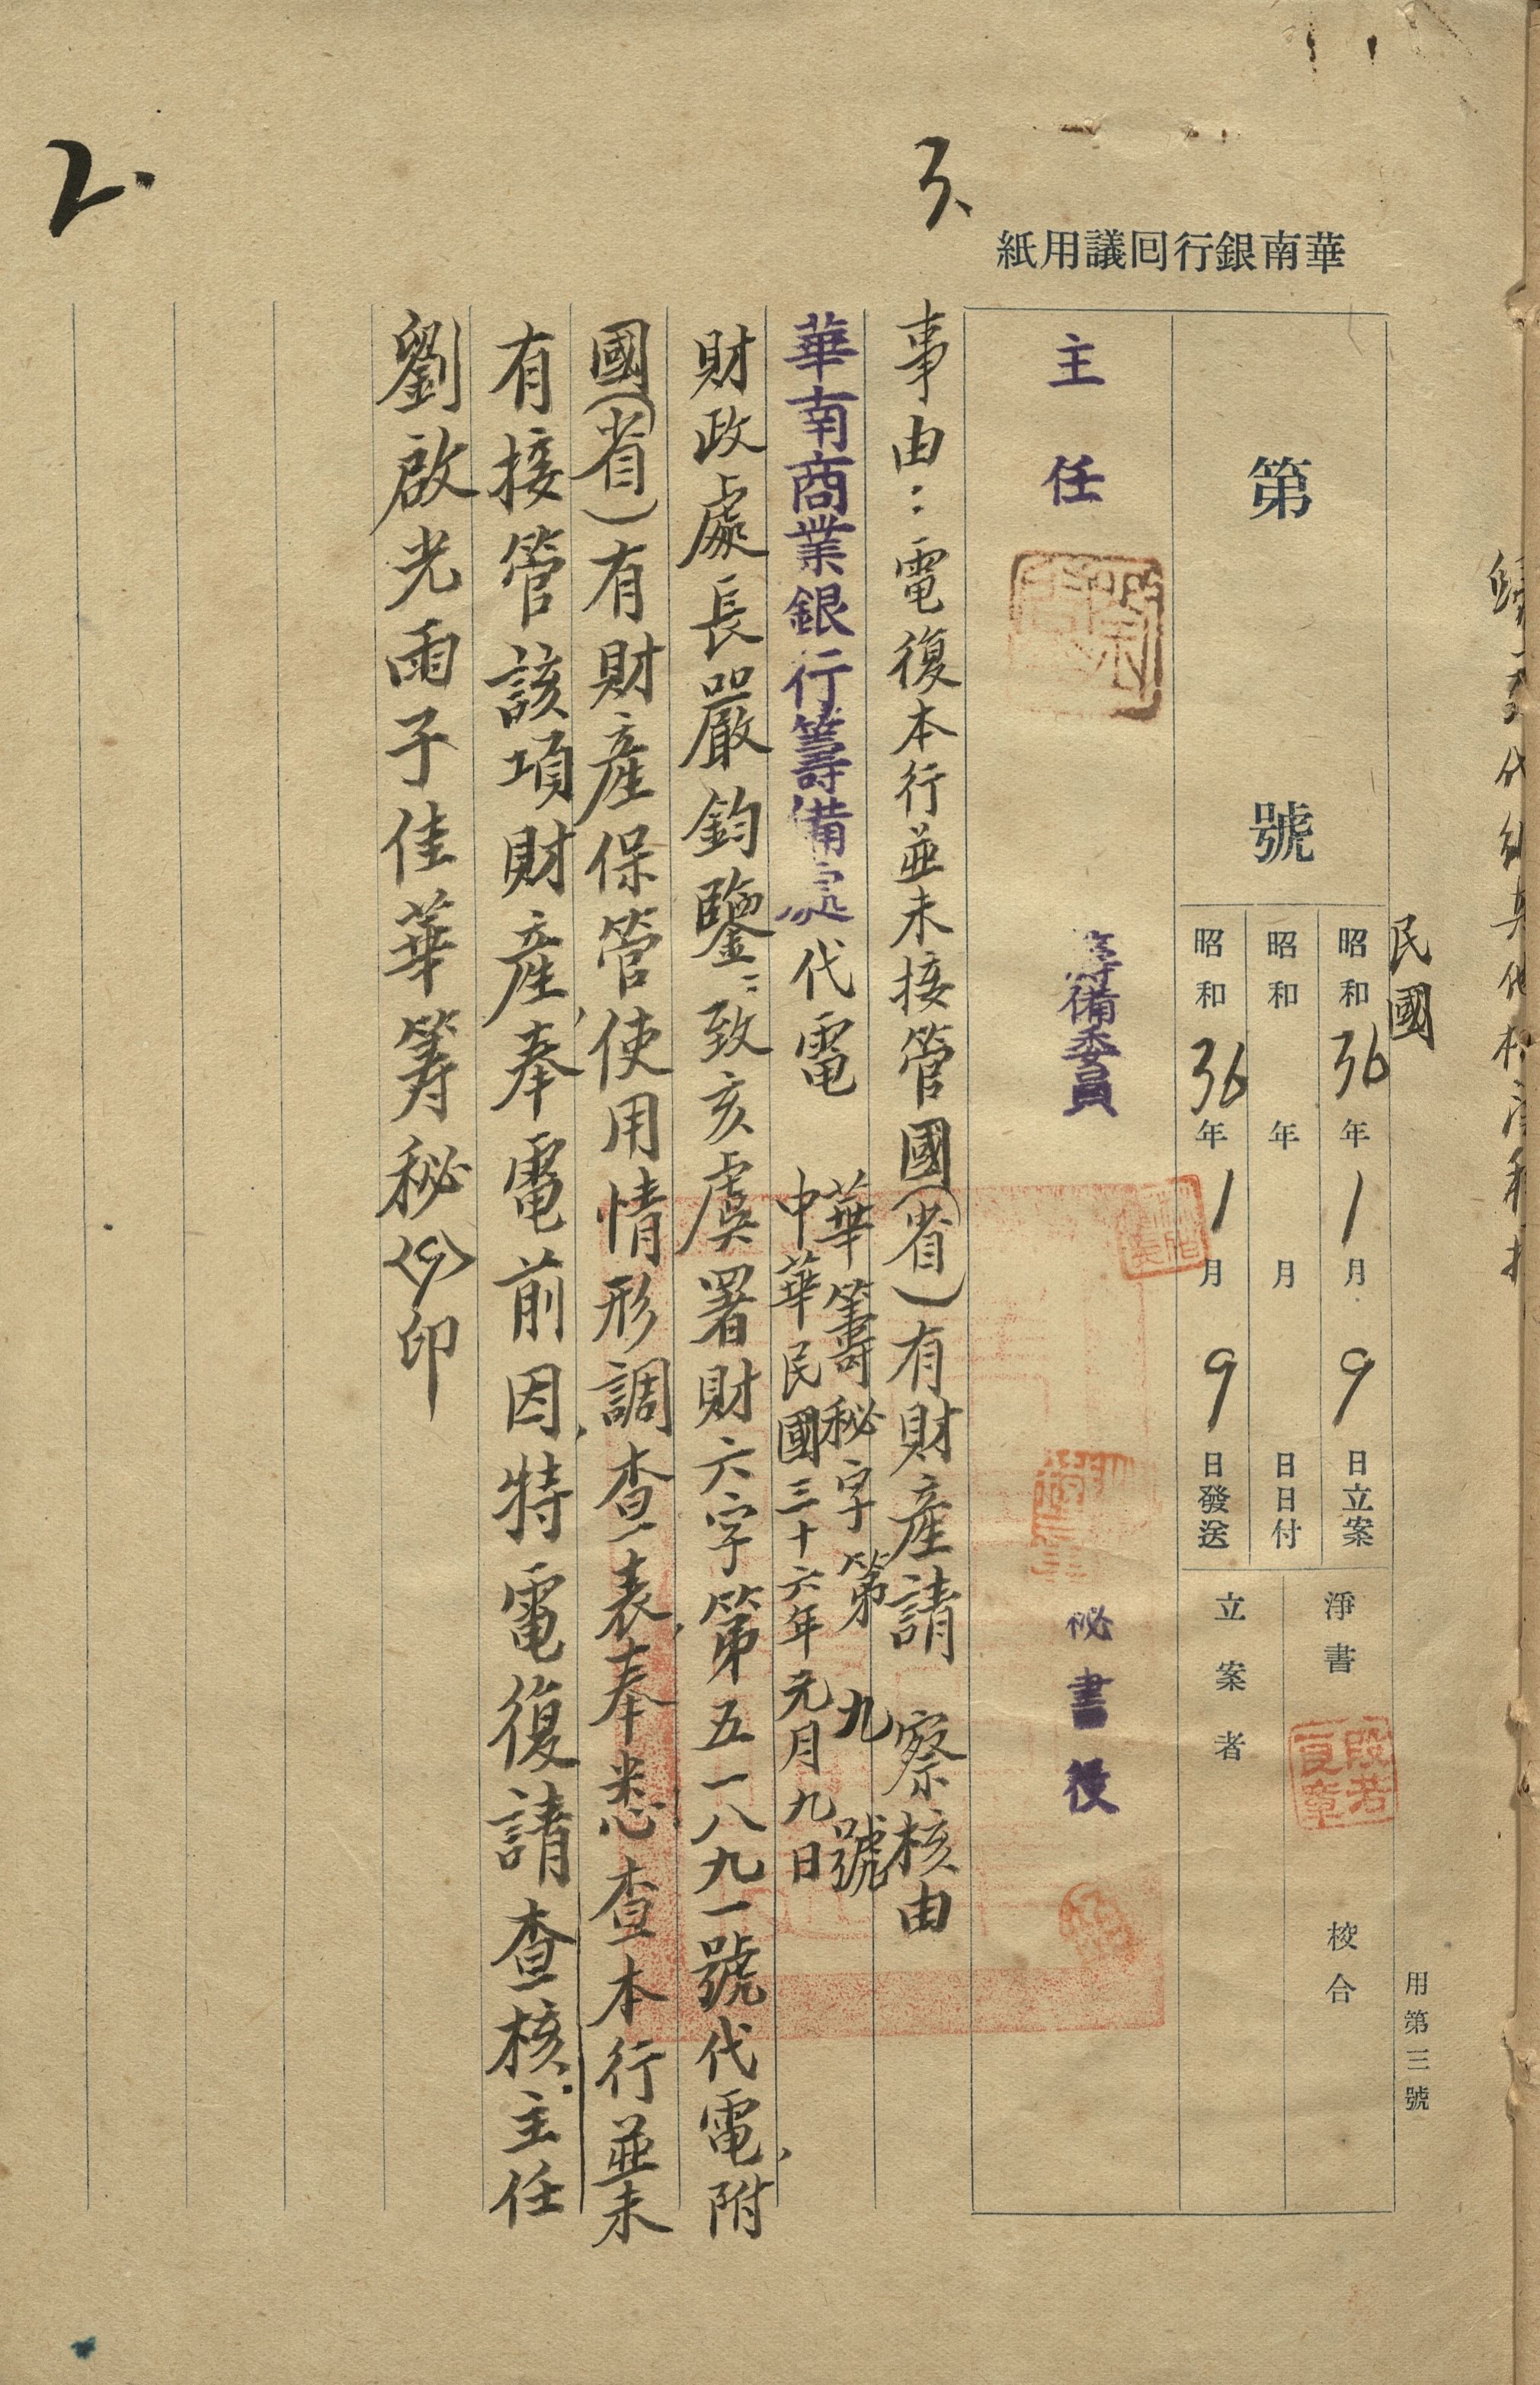 華南銀行囘議用紙
3、
2.
民國
用第三號
第 號
昭和36年1月9日立案
昭和 年 月 日日付
昭和36年1月9日發送
淨書 校合
立案者
主任 籌備委員 秘書役
事由：電復本行並未接管國(省)有財產請 察核由
華南商業銀行籌備處代電
華籌秘字第九號
中華民國三十六年元月九日
財政處長嚴鈞鑒：致亥虞署財六字第五一八九一號代電、附
國(省)有財產保管使用情形調查表、奉悉、查本行並未
有接管該項財產、奉電前因、特電復請查核.主任
劉啟光雨子佳華籌秘〈9〉印